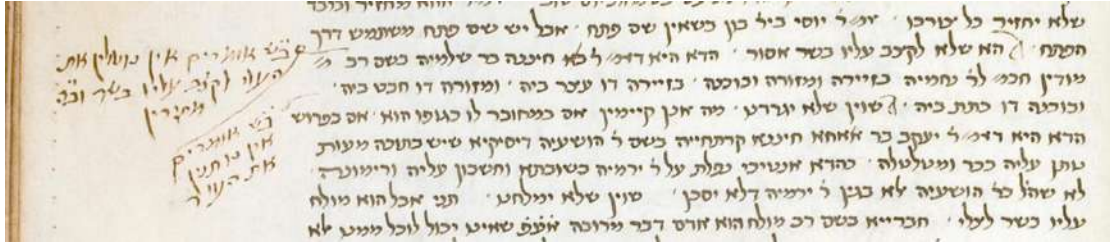 שלא יחזיר כל צורכו · ומ׳ר יוסי ביר׳ בון כשאין שם פתח · אבל יש שם פתח משתמש דרך
הפתח · הא שלא לקצב עליו בשר אסור · הדא היא דאמ׳ ר׳ בא חיננה בר שלמיה בשם רב
מודין חכמ׳ לר׳ נחמיה בזיירה ומזורה ובוכנה · בזיירה דו עצר ביה · ומזורה דו חבט ביה ·
ובוכנה דו כתת ביה · שוין שלא יגרדע · מה אנן קיימין אם במחובר לו כגופו הוא · אם בפרוש
הדא היא דאמ׳ ר׳ יעקב בר אחא חיננא קרתחייה בשם ר׳ הושעיה דיסיקיא שיש בתוכה מעות
נותן עליה ככר ומטלטלה · כהדא אנטיכי נפלת על ר׳ ירמיה בשובתא וחשבון עליה ורימונה
לא שהל בר הושעיה לא בגין ר׳ ירמיה דלא יסכן · שוין שלא ימלחנו · תני אבל הוא מולח
עליו בשר לצלי · חברייא בשם רב מולח הוא אדם דבר מרובה אעפ שאינו יכול לוכל ממנו לא
בש אומרים אין נוטלין את
העלי לקצב עליו בשר ובה
מתירין
בש אומרים
אין נותנין
את העור